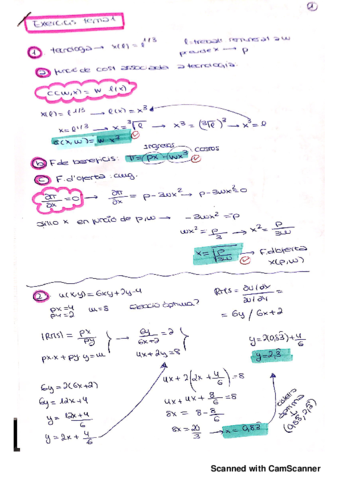 1
Exercicis tema 1
1 tecnologia → x(l) = l^1/3 l = treball remunerat a w
preu de x → p
a) funció de cost associada a tecnologia.
C(w,x) = w l(x)
x(l) = l^1/3 → l(x) = x³
x = l^1/3 → x = ³√l → x³ = (³√l)³ → x³ = l
C(x,w) = w x³
ingressos costos
b) F. de beneficis: π = px - wx³
c) F. d'oferta:
∂π/∂x = 0 → ∂π/∂x = p - 3wx² → p - 3wx² = 0
aïllo x en funció de p, w → -3wx² = p
wx² = p/3 → x² = p/3w
x = √p/3w → F. d'oferta
x(p,w)
2) u(x,y) = 6xy + 2y
px = 4
py = 2 m = 8 elecció òptima?
RMS = ∂u/∂x / ∂u/∂y =
= 6y / 6x + 2
|RMS| = px/py
px·x + py·y = m
6y/6x+2 = 2
4x + 2y = 8
6y = 2(6x+2)
6y = 12x + 4
y = 12x+4/6
y = 2x + 4/6
4x + 2(2x + 4/6) = 8
4x + 4x + 8/6 = 8
8x = 8 - 8/6
8x = 20/3 → x = 0,83
y = 2(0,83) + 4/6
y = 2,3
cistella òptima
(0,83, 2,3)
Scanned with CamScanner